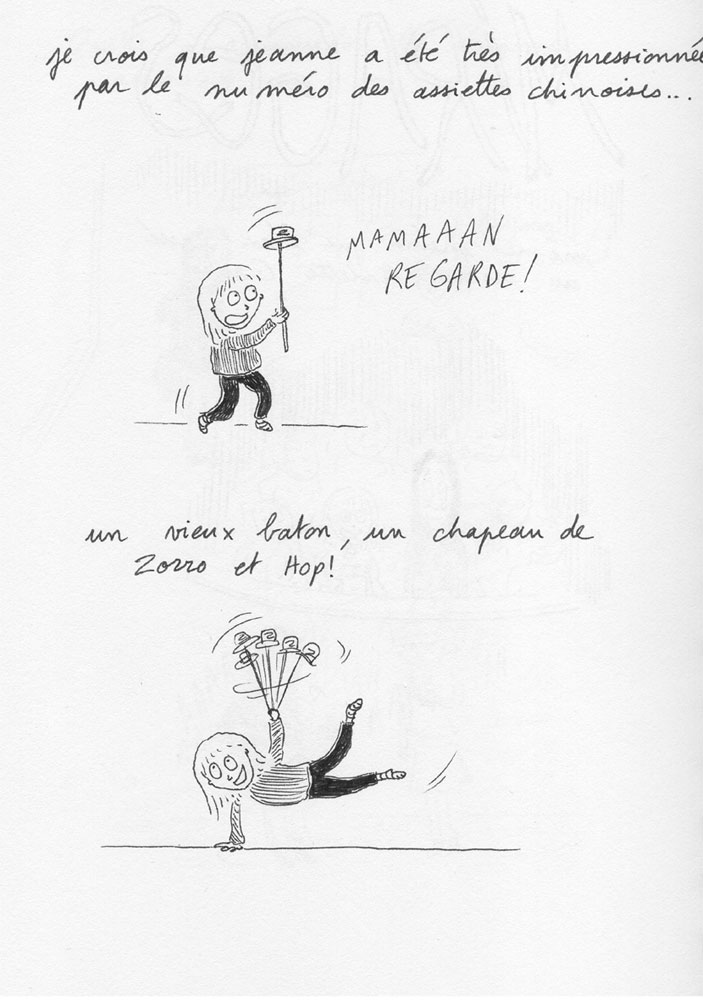 je crois que jeanne a été très impressionnée
par le numéro des assiettes chinoises...
MAMAAAN
REGARDE!
un vieux baton, un chapeau de
Zorro et Hop!